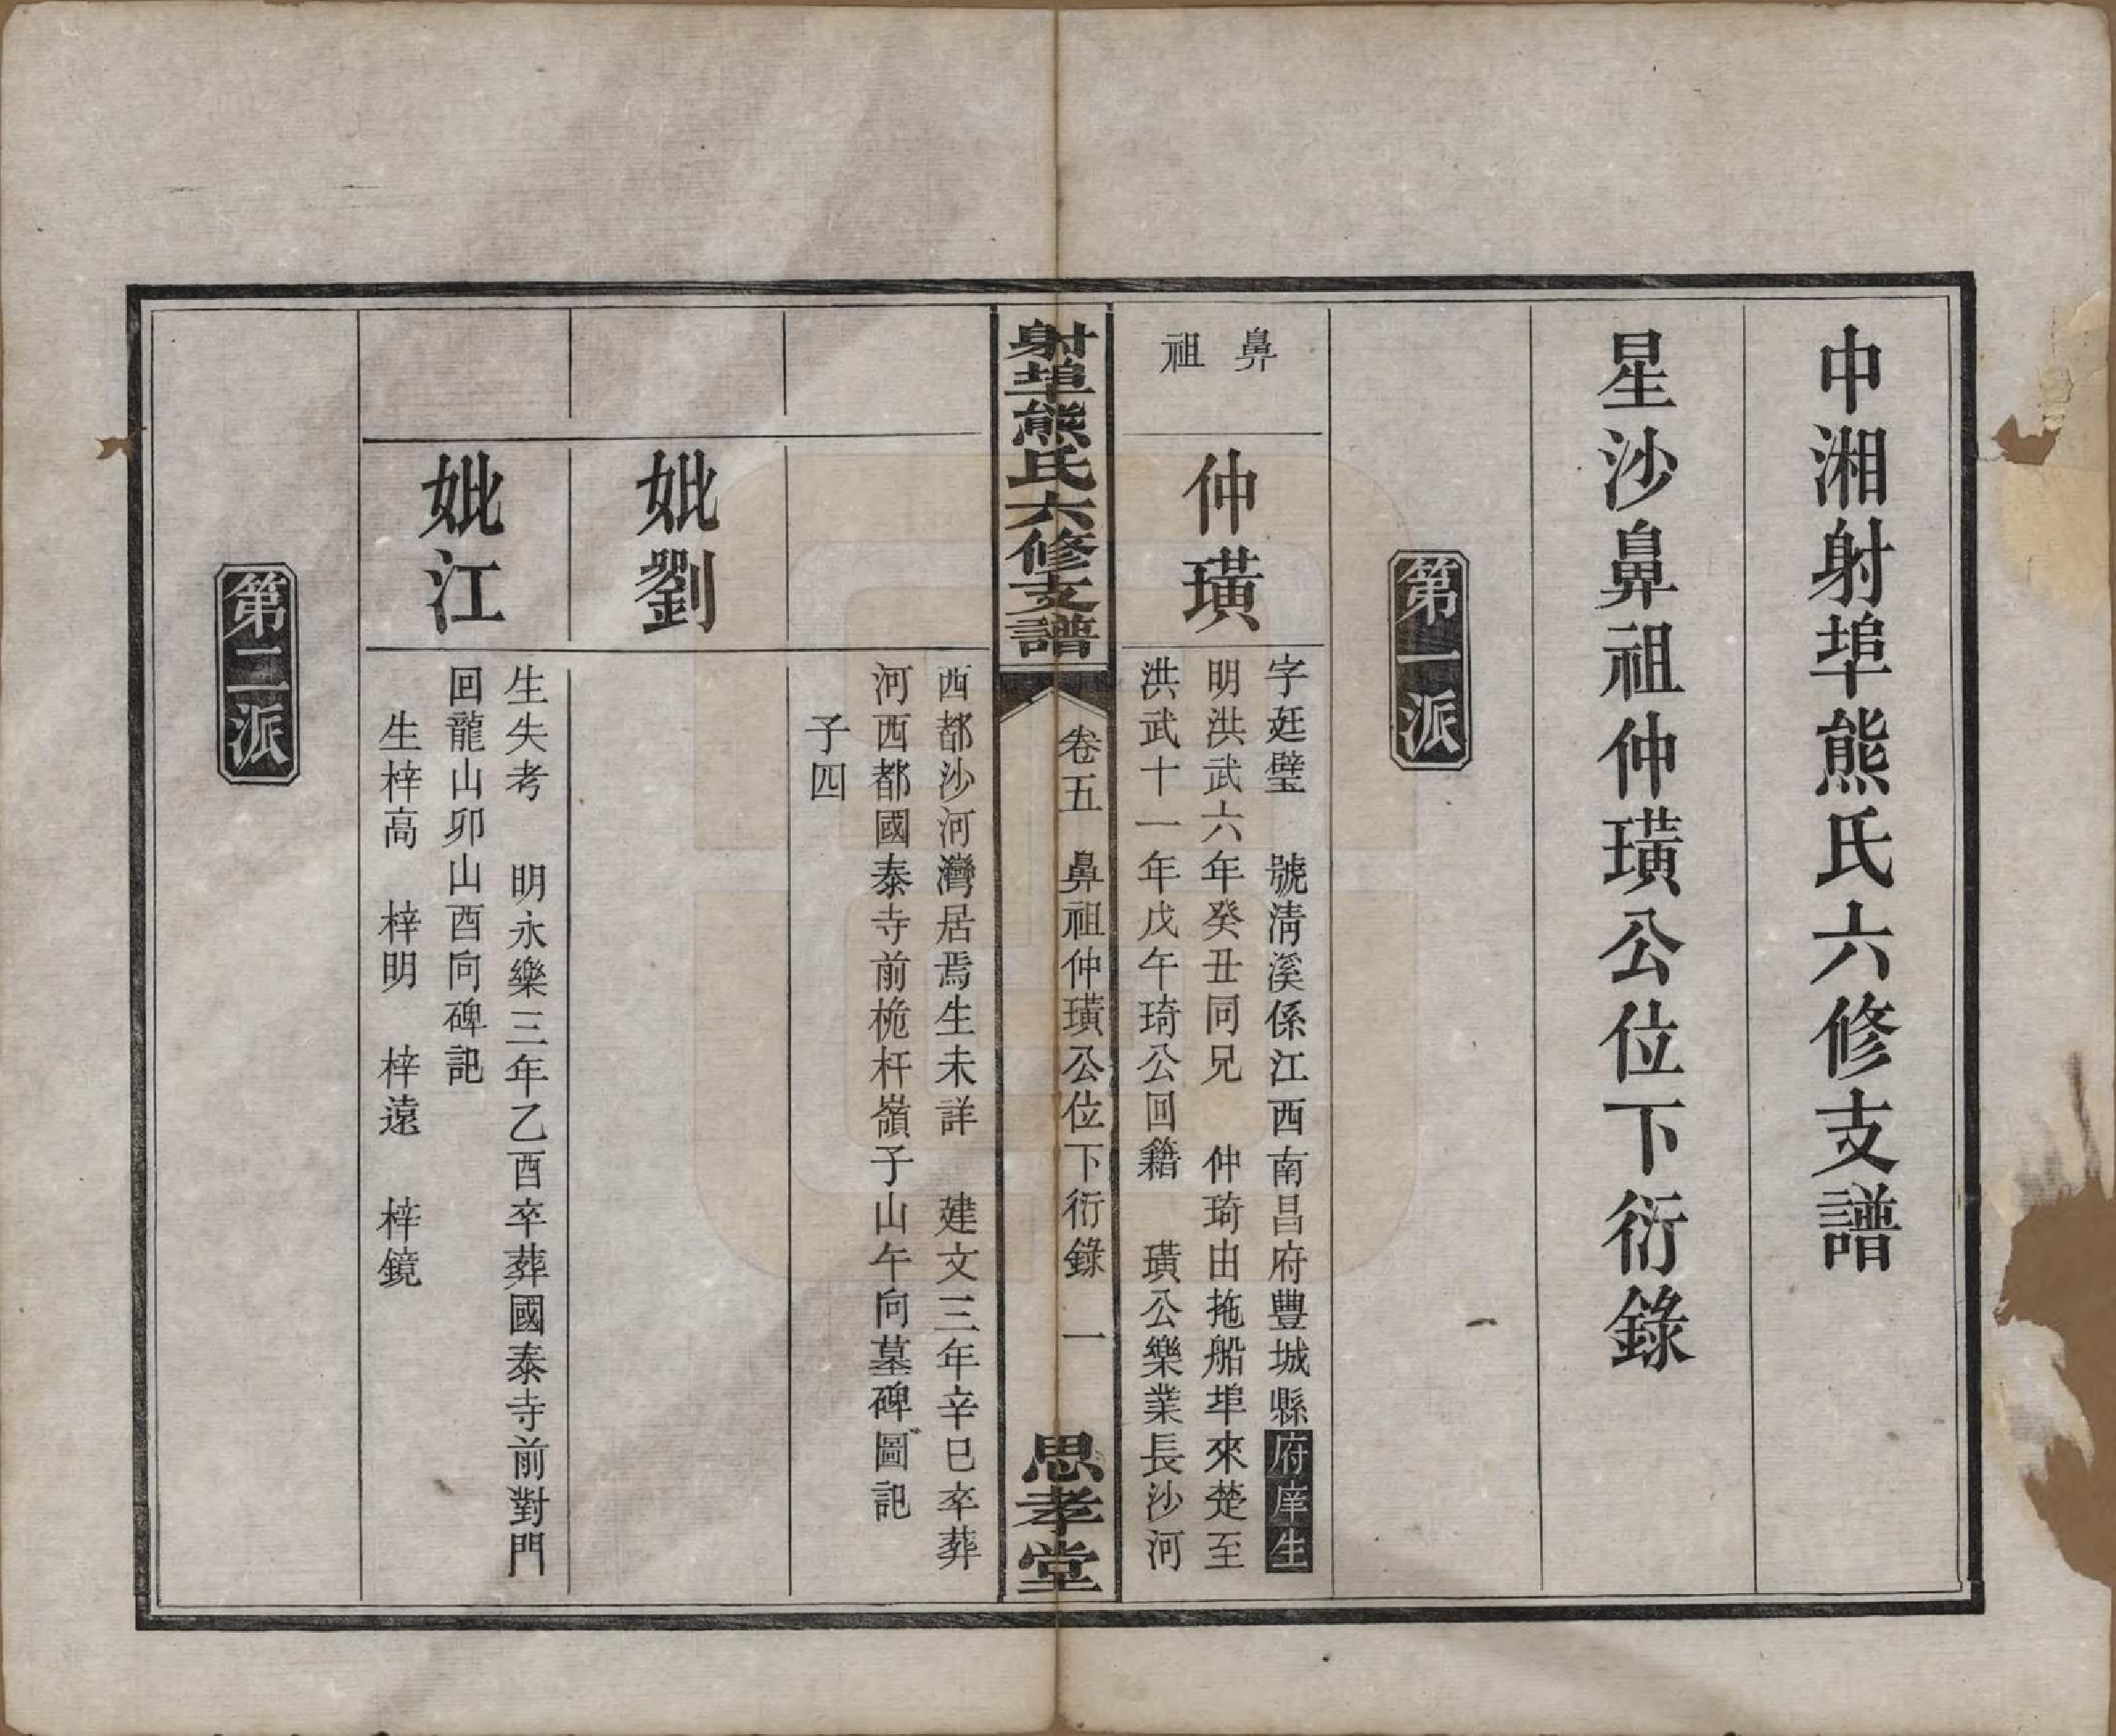 中湘射埠熊氏六修支譜
星沙鼻祖仲璜公位下衍錄
第一派
鼻祖
仲璜
字廷璧　號清溪係江西南昌府豐城縣府庠生
明洪武六年癸丑同兄　仲琦由拖船埠來楚至
洪武十一年戊午琦公回籍　璜公樂業長沙河
射埠熊氏六修支譜
卷五　鼻祖仲璜公位下衍錄　一
思孝堂
西都沙河灣居焉生未詳　建文三年辛巳卒葬
河西都國泰寺前桅杆嶺子山午向墓碑圖記
子四
妣劉
妣江
生失考　明永樂三年乙酉卒葬國泰寺前對門
回龍山卯山酉向碑記
生梓高　梓明　梓遠　梓鏡
第二派